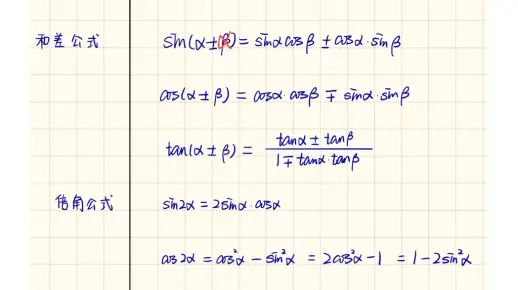 和差公式 sin(α±β)=sinαcosβ±cosα·sinβ
cos(α±β)=cosα·cosβ∓sinα·sinβ
tan(α±β)=(tanα±tanβ)/(1∓tanα·tanβ)
倍角公式 sin2α=2sinα·cosα
cos2α=cos²α-sin²α=2cos²α-1=1-2sin²α